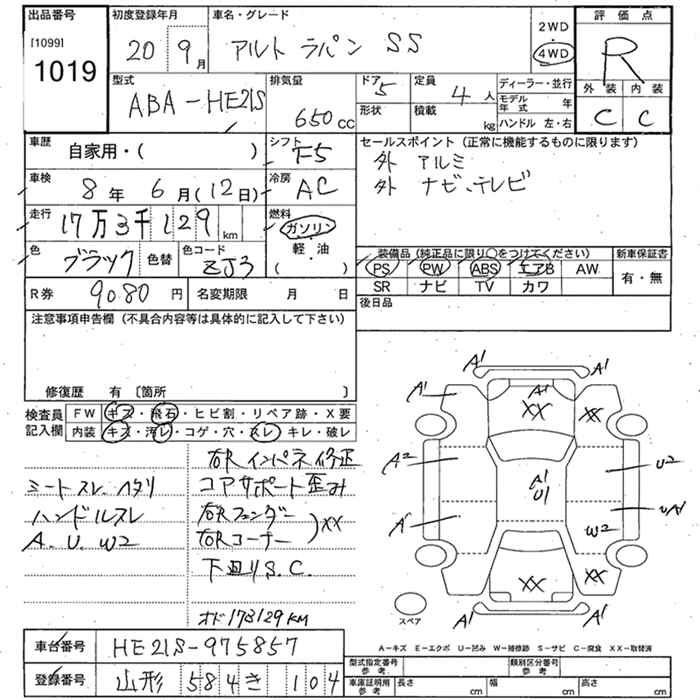 出品番号 初度登録年月 車名・グレード 2WD 評価点
[1099] 1019 20年 9月 アルト ラパン SS 4WD R
型式 排気量 ドア 定員 ディーラー・並行 外装 内装
ABA-HE21S 650cc 5 4人 モデル年式 年 C C
形状 積載 kg ハンドル 左・右
車歴 シフト セールスポイント (正常に機能するものに限ります)
自家用・( ) F5 外 アルミ
車検 冷房 外 ナビ、テレビ
8年 6月(12日) AC
走行 燃料
17万3千129km ガソリン
軽・油
色 色替 色コード ( ) 装備品 (純正品に限り○をつけてください) 新車保証書
ブラック ZJ3 PS PW ABS エアB AW 有・無
SR ナビ TV カワ
R券 9080円 名変期限 月 日 後日品
注意事項申告欄 (不具合内容等は具体的に記入して下さい)
修復歴 有 〔箇所 〕
検査員 FW キズ・飛石・ヒビ割・リペア跡・X要
記入欄 内装 キズ・汚レ・コゲ・穴・スレ・キレ・破レ
右Rインパネ修正
シートスレ、ヘタリ コアサポート歪み
ハンドルスレ 右Rフェンダー
A.U.W2 右Rコーナー )XX
下回りS.C.
オド173129KM
A1 A1
A1 A1 XX XX
A2 U2
A1 U1 UA1
A1 W2
XX XX
A1 A1
スペア
A-キズ E-エクボ U-凹み W-補修跡 S-サビ C-腐食 XX-取替済
車台番号 HE21S-975857
登録番号 山形 584 き 104
型式指定番号 参考 類別区分番号 参考
車庫証明用 参考 長さ cm 幅 cm 高さ cm